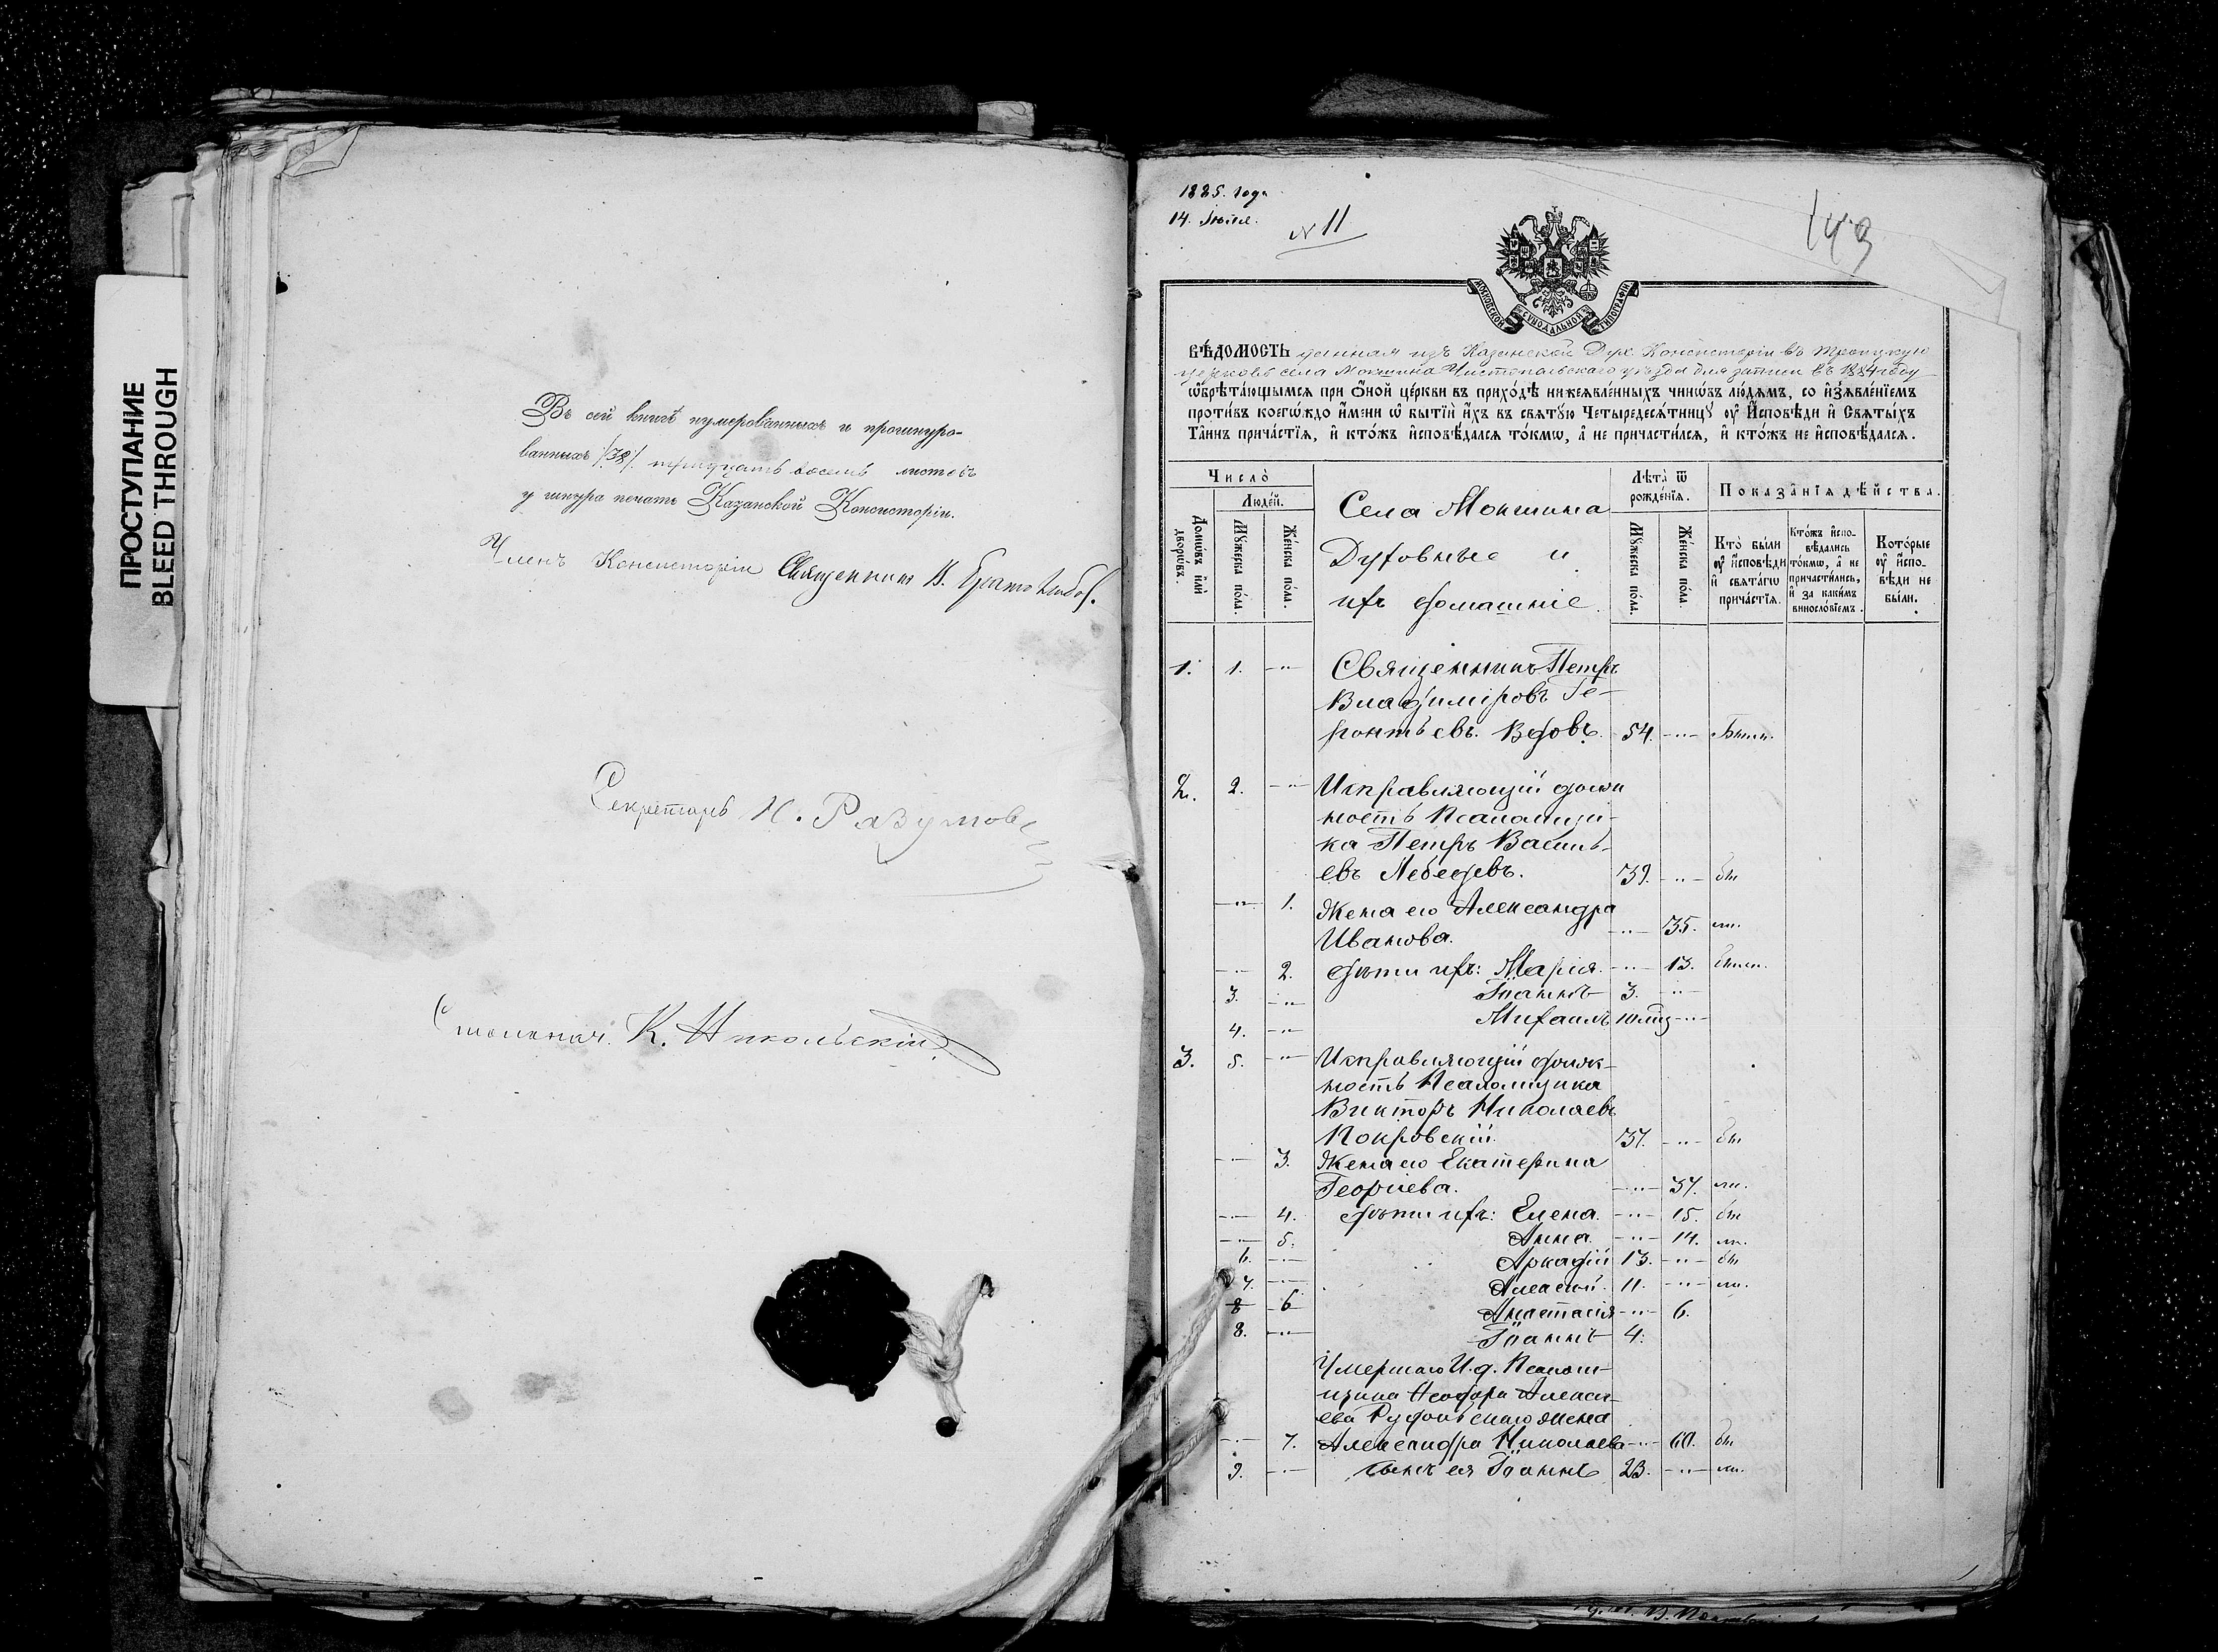 ПРОСТУПАНИЕ
BLEED THROUGH
Въ сей книгѣ нумерованныхъ и прошнуро-
ванныхъ /38/ тридцать восемь листовъ
у шнура печать Казанской Консисторіи.
Членъ Консисторіи Священникъ
Секретарь Н. Разумов
Столонач. К. Никольскій
1885. года
14. Іюля.
№ 11
149
МОСКОВСКОЙ СѴНОДАЛЬНОЙ ТИПОГРАФІИ
ВѢ́ДОМОСТЬ данная изъ Казанской Дух. Консисторіи въ Троицкую
церковь села Мокшина Чистопольскаго уѣзда для записи въ 1884 году
ѡ҆брѣта́ющымсѧ при ѻ҆́ной це́ркви въ прихо́дѣ нижеѧвле́нныхъ чинѡ́въ лю́демъ, со и҆з̾ѧвле́нїемъ
проти́въ коегѡ́ждо и҆́мени ѡ҆ бытїи̑ и҆́хъ въ свѧтꙋ́ю Четыредесѧ́тницꙋ ᲂу҆ И҆сповѣ́ди и҆ Свѧты́хъ
Та̑инъ прича́стїѧ, и҆ кто́жъ и҆сповѣ́далсѧ то́кмѡ, а҆ не причасти́лсѧ, и҆ кто́жъ не и҆сповѣ́далсѧ.
Число̀
Домѡ́въ и҆лѝ дворѡ́въ.
Люде́й.
Мꙋ́жеска по́ла.
Же́нска по́ла.
Села Мокшина
Духовные и
ихъ домашніе.
Лѣ́та ѿ рожде́нїѧ.
Мꙋ́жеска по́ла.
Же́нска по́ла.
Показа̑нїѧ дѣ́йства.
Кто̀ бы́ли ᲂу҆ и҆сповѣ́ди и҆ свѧта́гѡ прича́стїѧ.
Кто́жъ и҆спо-вѣ́дались то́кмѡ, а҆ не причасти́лись, и҆ за каки́мъ винослόвїемъ.
Кото́рые ᲂу҆ и҆спо-вѣ́ди не бы́ли.
1. 1. -"- Священникъ Петръ
Владиміровъ Ге-
ронтьевъ. Вдовъ. 54. -"- Были.
2. 2. -"- Исправляющій долж
ность Псаломщи-
ка Петръ Василь-
евъ Лебедевъ. 39. -"- бы
-"- 1. Жена его Александра
Иванова. -"- 35. ли.
-"- 2. Дѣти ихъ: Марія. -"- 13. были.
3. -"- Іоаннъ 3. -"-
4. -"- Михаилъ 10 мѣ -"-
3. 5. -"- Исправляющій долж-
ность Псаломщика
Викторъ Николаевъ
Покровскій. 37. -"- бы
-"- 3. Жена его Екатерина
Георгіева. -"- 37. ли.
-"- 4. Дѣти ихъ: Елена. -"- 15. бы
-"- 5. Анна. -"- 14. ли.
6. -"- Аркадій 13. -"- бы
7. -"- Алексѣй. 11. -"- ли.
8 6 Анастасія -"- 6.
8. -"- Іоаннъ 4.
Умершаго И. д. Псалом-
щика Ѳеодора Алексѣ-
ева Рудольскаго жена
-"- 7. Александра Николаева -"- 60. бы
9. -"- сынъ ея Іоаннъ 23. -"- ли.